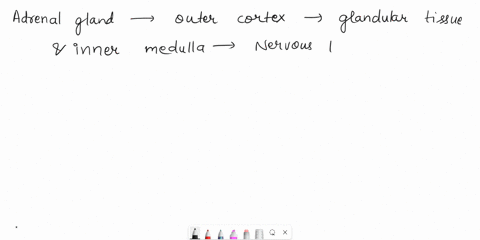 Adrenal gland → outer cortex → glandular tissue
& inner medulla → Nervous